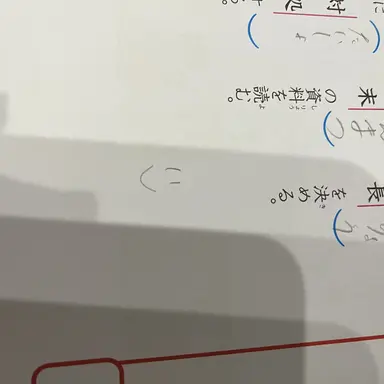 長を決める。
ょう
末の資料を読む。
まつ
対処
たいしょ